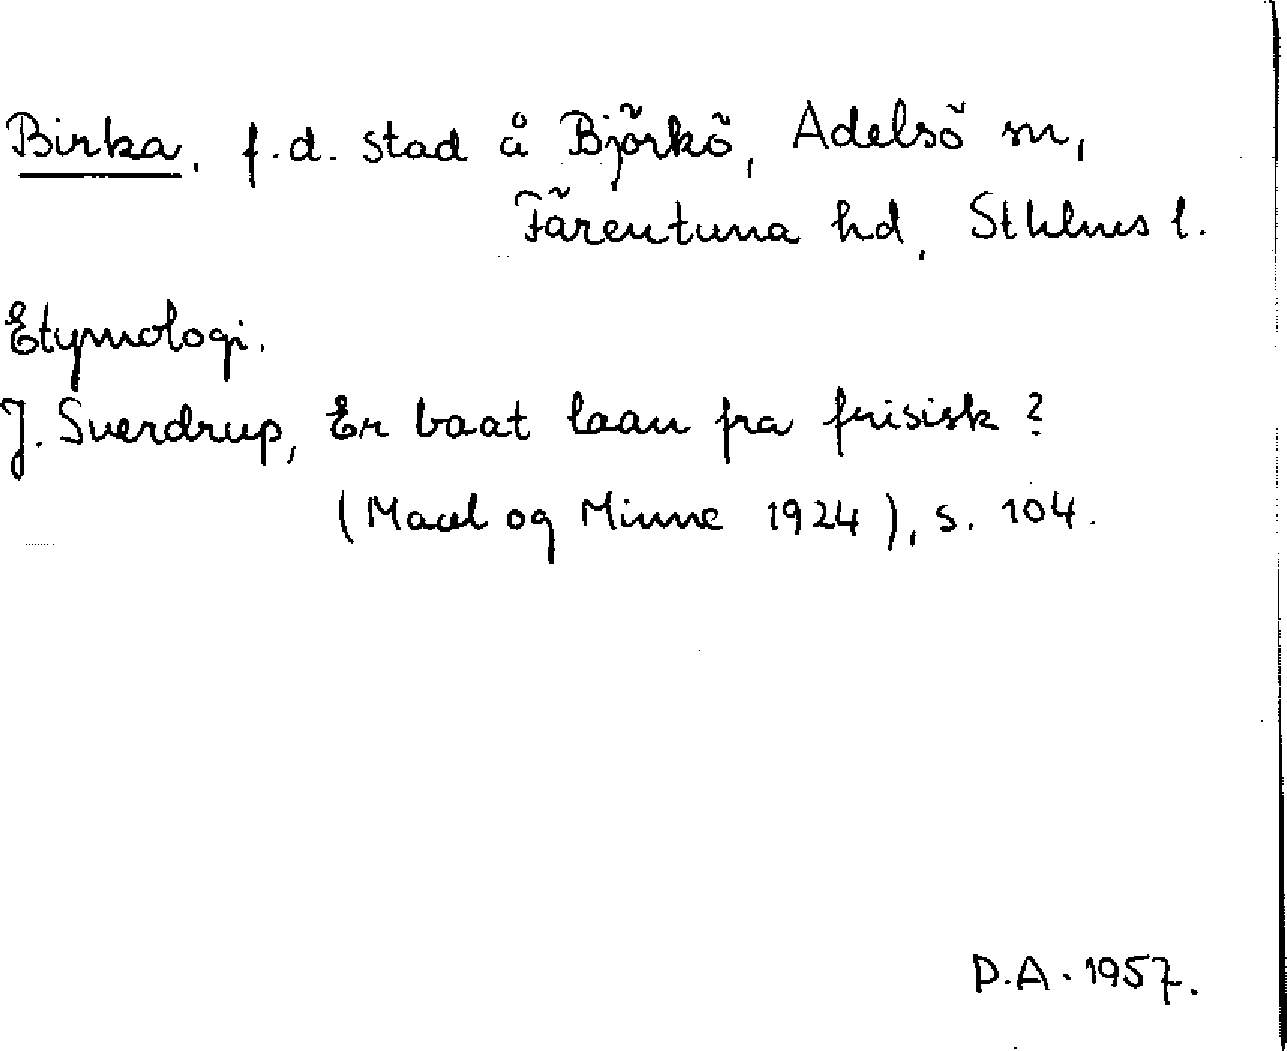 Birka. f.d. stad å Björkö, Adelsö sn,
Färentuna hd, Sthlms l.
Etymologi.
J. Sverdrup, Er baat laan fra frisisk?
(Maal og Minne 1924), s. 104.
D.A. 1957.